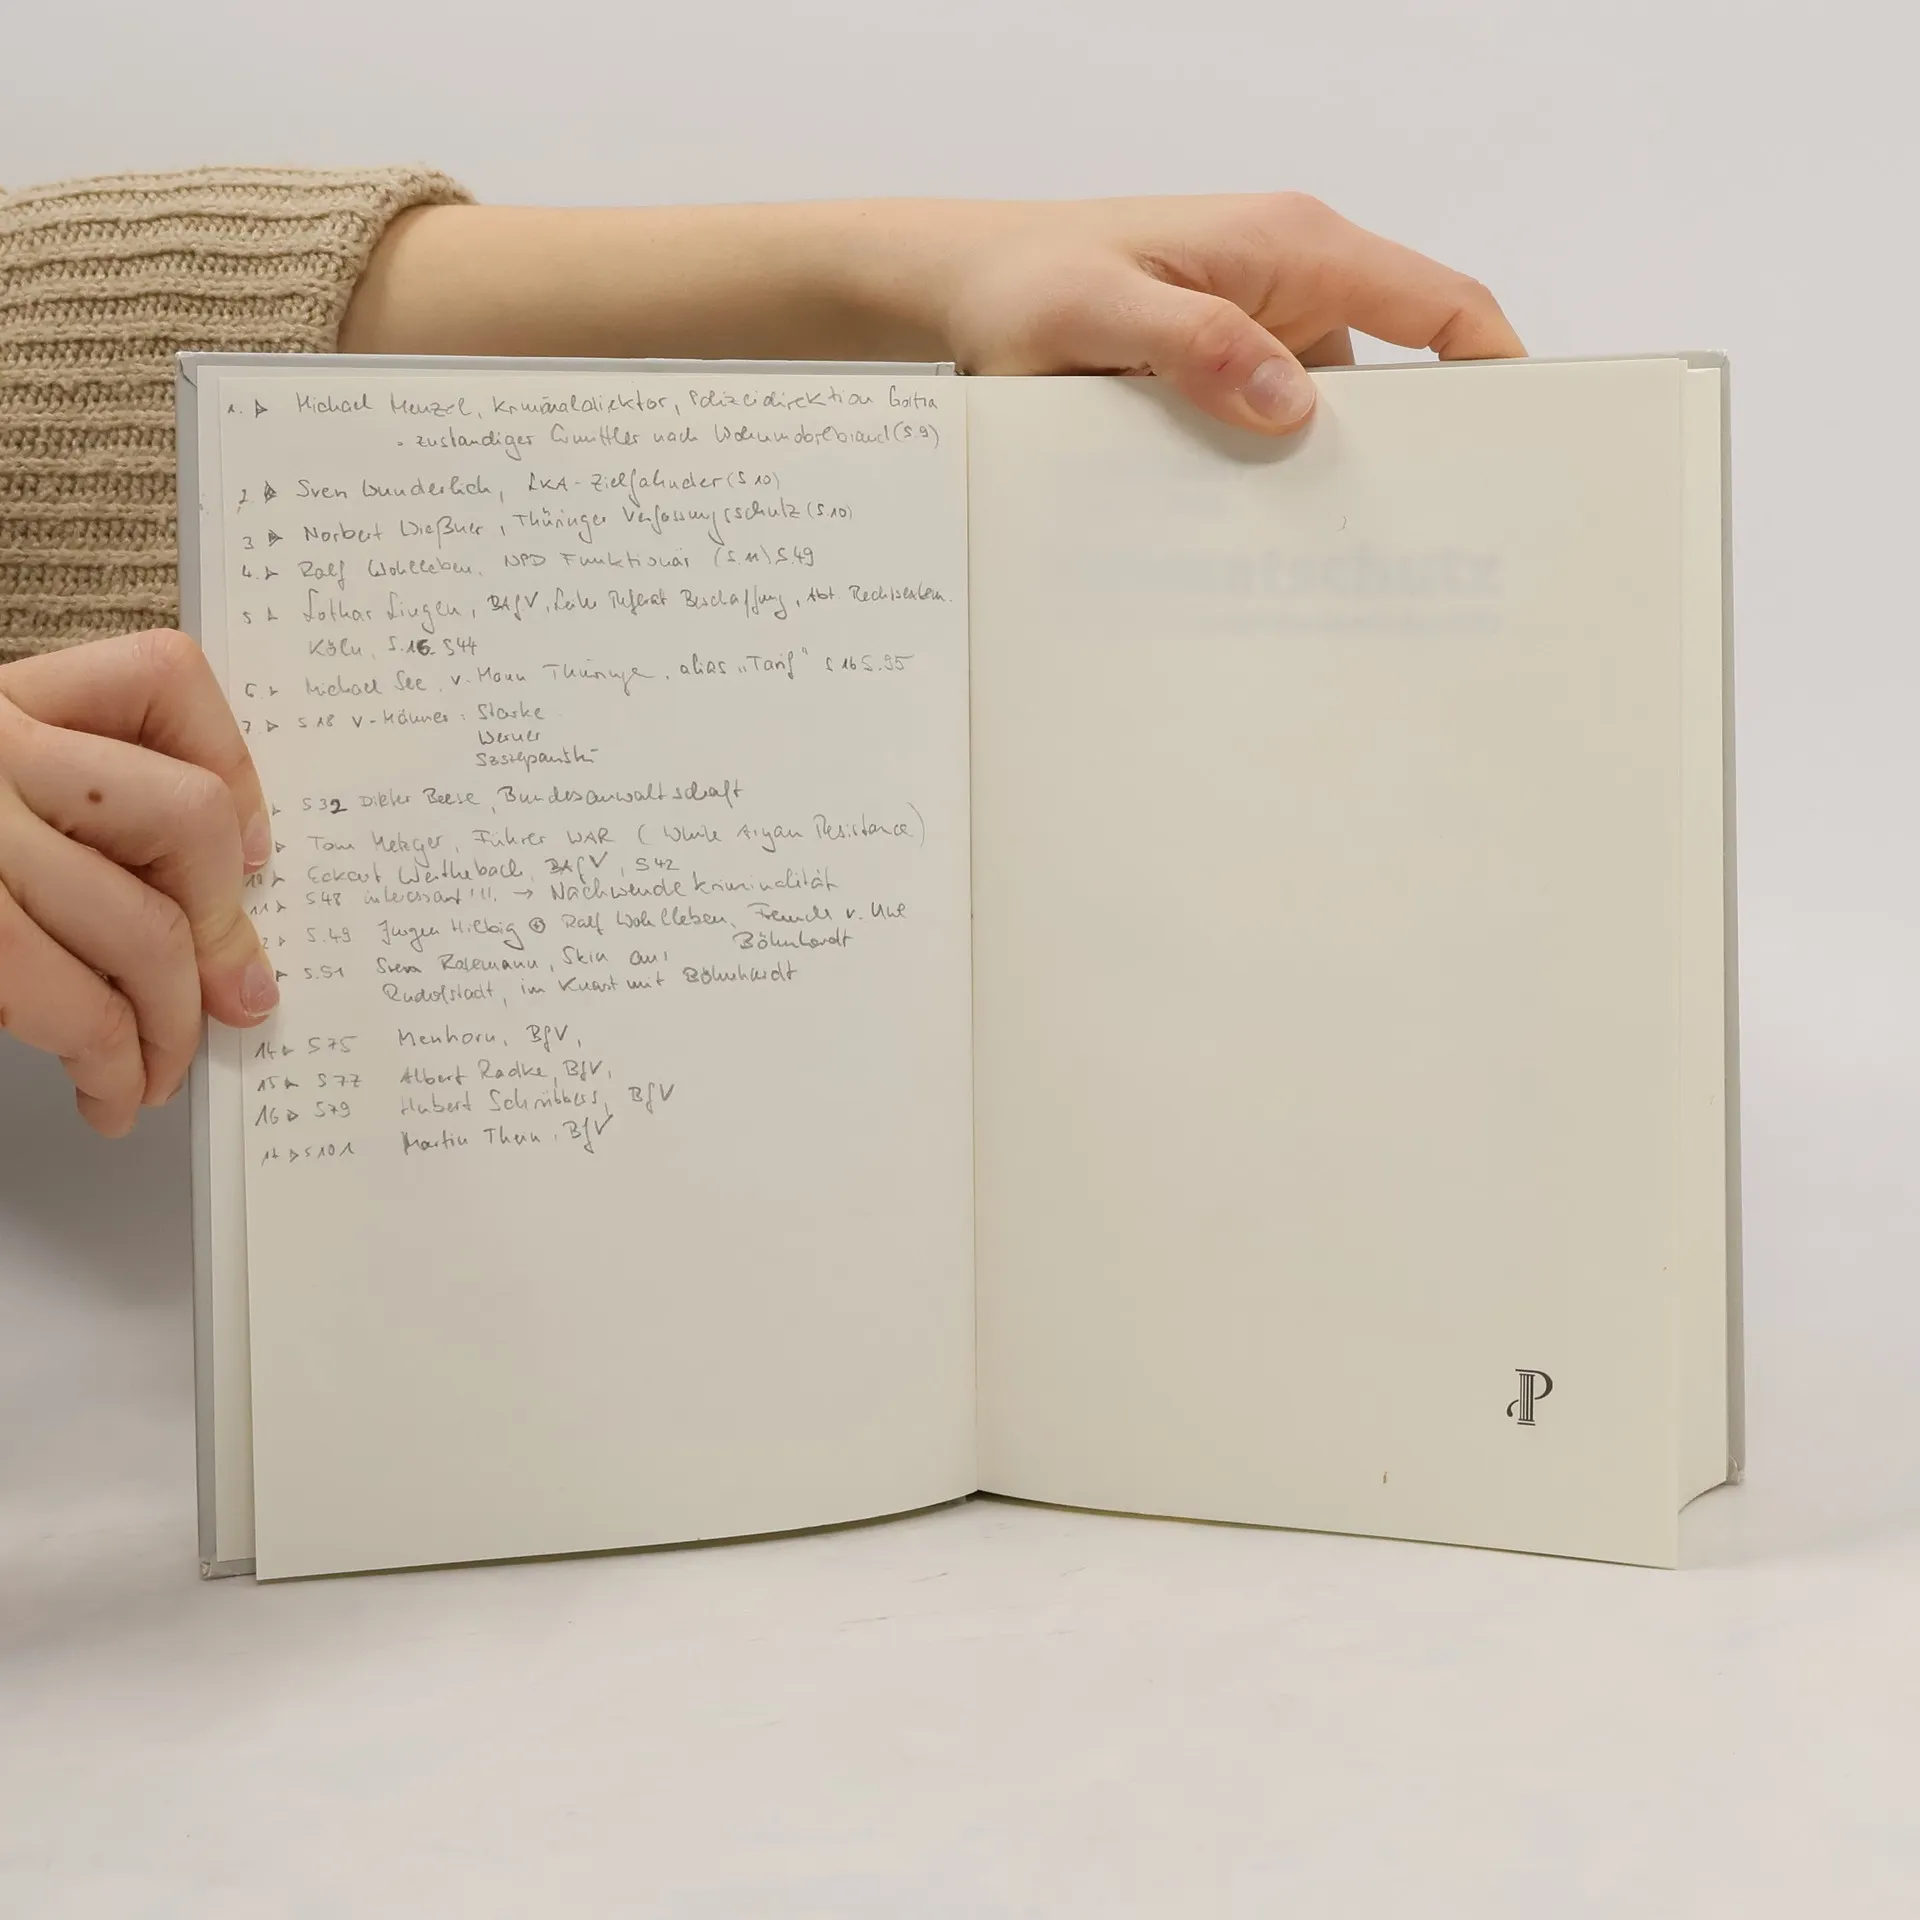 1. Michael Menzel, Kriminaldirektor, Polizeidirektion Gotha
- zuständiger Ermittler nach Wohnmobilbrand (S.9)
2. Sven Wunderlich, LKA-Zielfahnder (S 10)
3 Norbert Wießner, Thüringer Verfassungsschutz (S.10)
4. Ralf Wohlleben, NPD Funktionär (S. 11) S.49
5 Lothar Lingen, BfV, Referat Beschaffung, Abt. Rechtsextrem.
Köln, S.16 S44
6. Michael See, V-Mann Thüringen, alias "Tarif" S 16 S.95
7 S 18 V-Männer: Starke
Werner
Szczepanski
S 32 Dikter Beese, Bundesanwaltschaft
Tom Metzger, Führer WAR (White Aryan Resistance)
10 Eckart Werthebach, BfV, S 42
11 S48 interessant!!! → Nachwendekriminalität
2 S.49 Jürgen Helbig + Ralf Wohlleben, Freunde v. Uwe
Böhnhardt
S.51 Sven Rosemann, Skin aus
Rudolstadt, im Knast mit Böhnhardt
14 S75 Menhorn, BfV,
15 S77 Albert Radke, BfV,
16 S79 Hubert Schrübbers, BfV
17 S101 Martin Thein, BfV
P